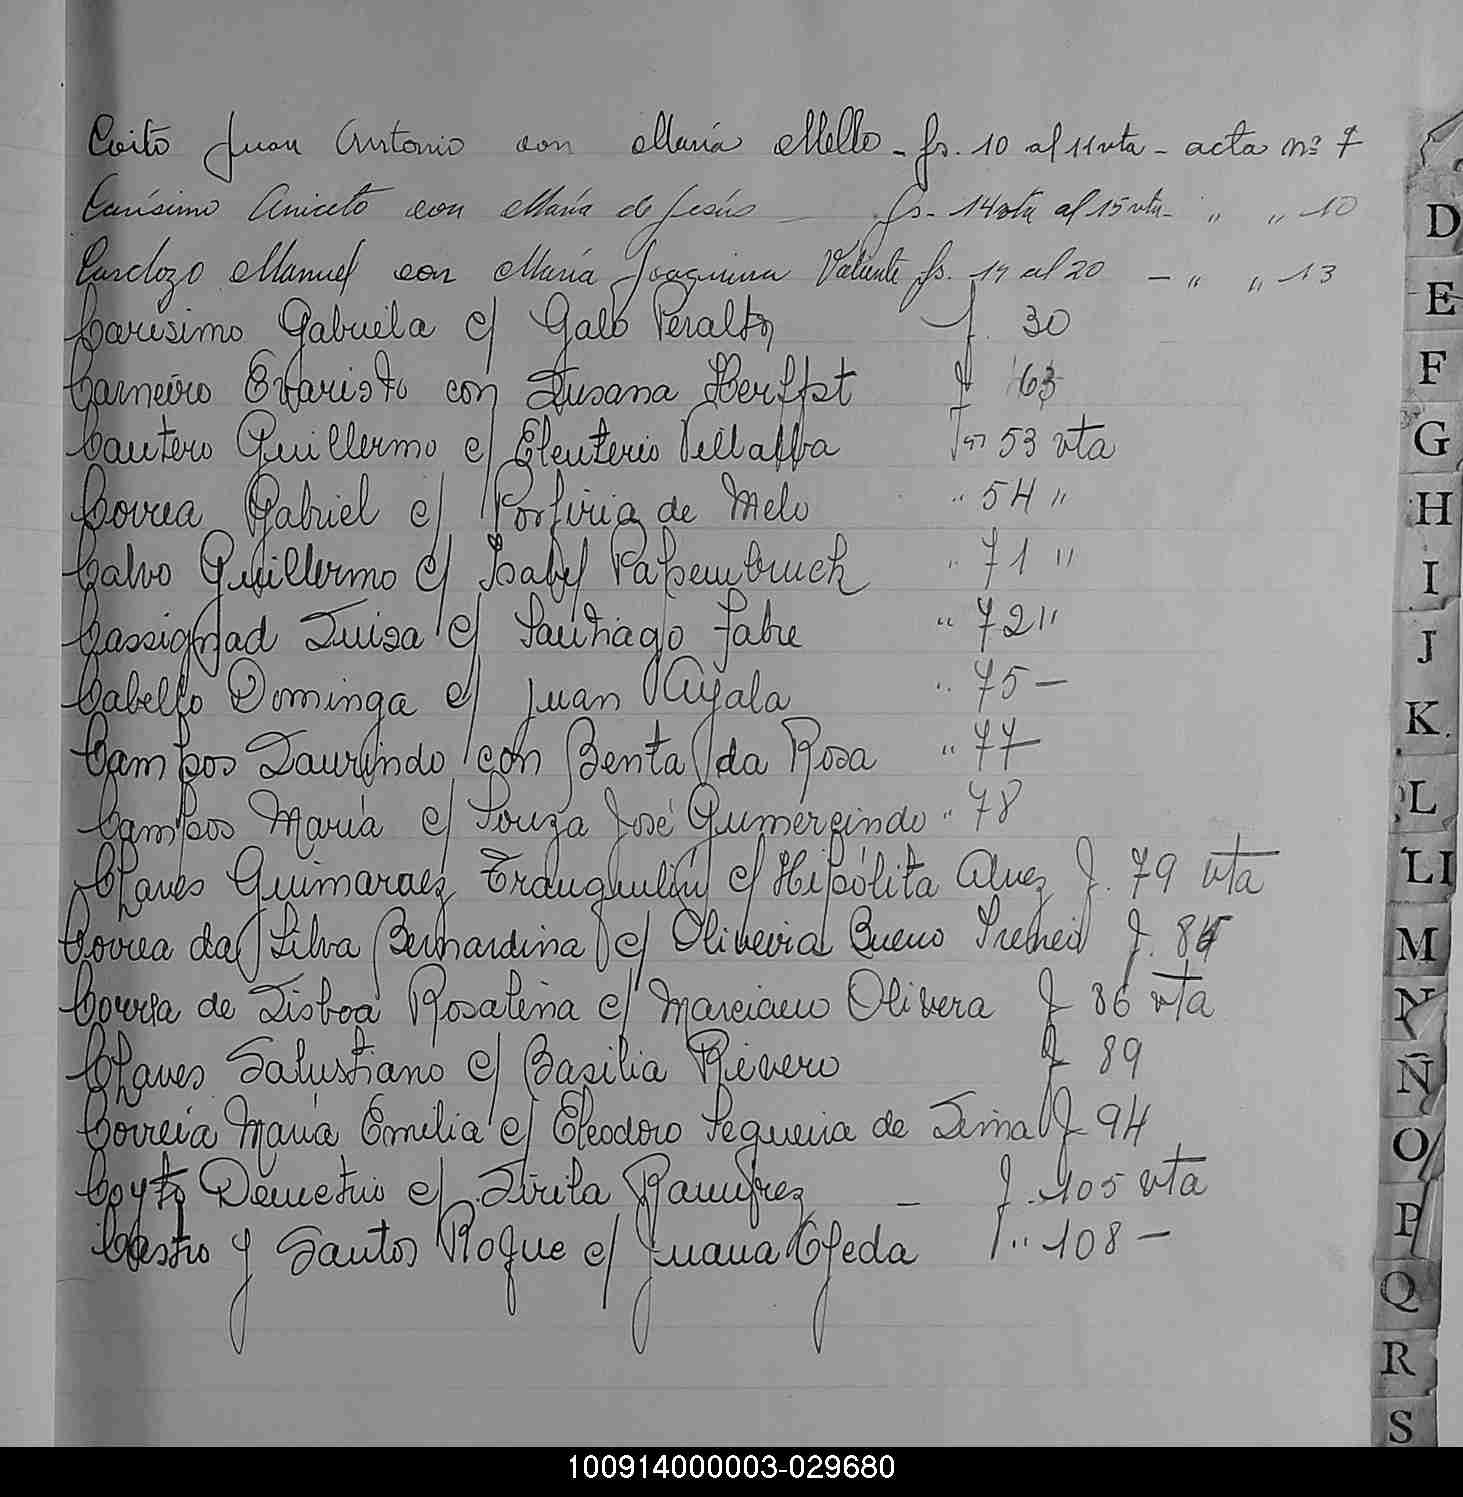 Coito Juan Antonio con María Mello - fs. 10 al 11 vta - acta nº 7
Carísimo Aniceto con María de Jesús - fs. 14 vta al 15 vta - " " 10
Cardozo Manuel con María Joaquina Valiente fs. 19 al 20 - " " 13
Carisimo Gabriela c/ Galo Peralta f. 30
Carneiro Evaristo con Susana Herffst f 63
Cautero Guillermo c/ Eleuterio Villalba Fs 53 vta
Correa Gabriel c/ Porfiria de Melo " 54 "
Calvo Guillermo c/ Isabel Papembruck " 71 "
Cassignad Luisa c/ Santiago Fabre " 72 "
Cabello Dominga c/ Juan Ayala " 75 -
Campos Laurindo con Benta da Rosa " 77 -
Campos María c/ Souza José Gumercindo " 78
Chaves Guimaraez Tranquulin c/ Hipólita Alvez f. 79 vta
Correa da Silva Bernardina c/ Oliveira Bueno Ireneo f. 84
Correa de Lisboa Rosalina c/ Marciano Olivera f 86 vta
Chaves Salustiano c/ Basilia Rivero f 89
Correia María Emilia c/ Eleodoro Sequeira de Lima f 94
Coyto Demetrio c/ Ramirez - f. 105 vta
Castro y Santos Roque c/ Juana Ojeda f " 108 -
D
E
F
G
H
I
J
K
L
LL
M
N
Ñ
O
P
Q
R
S
100914000003-029680